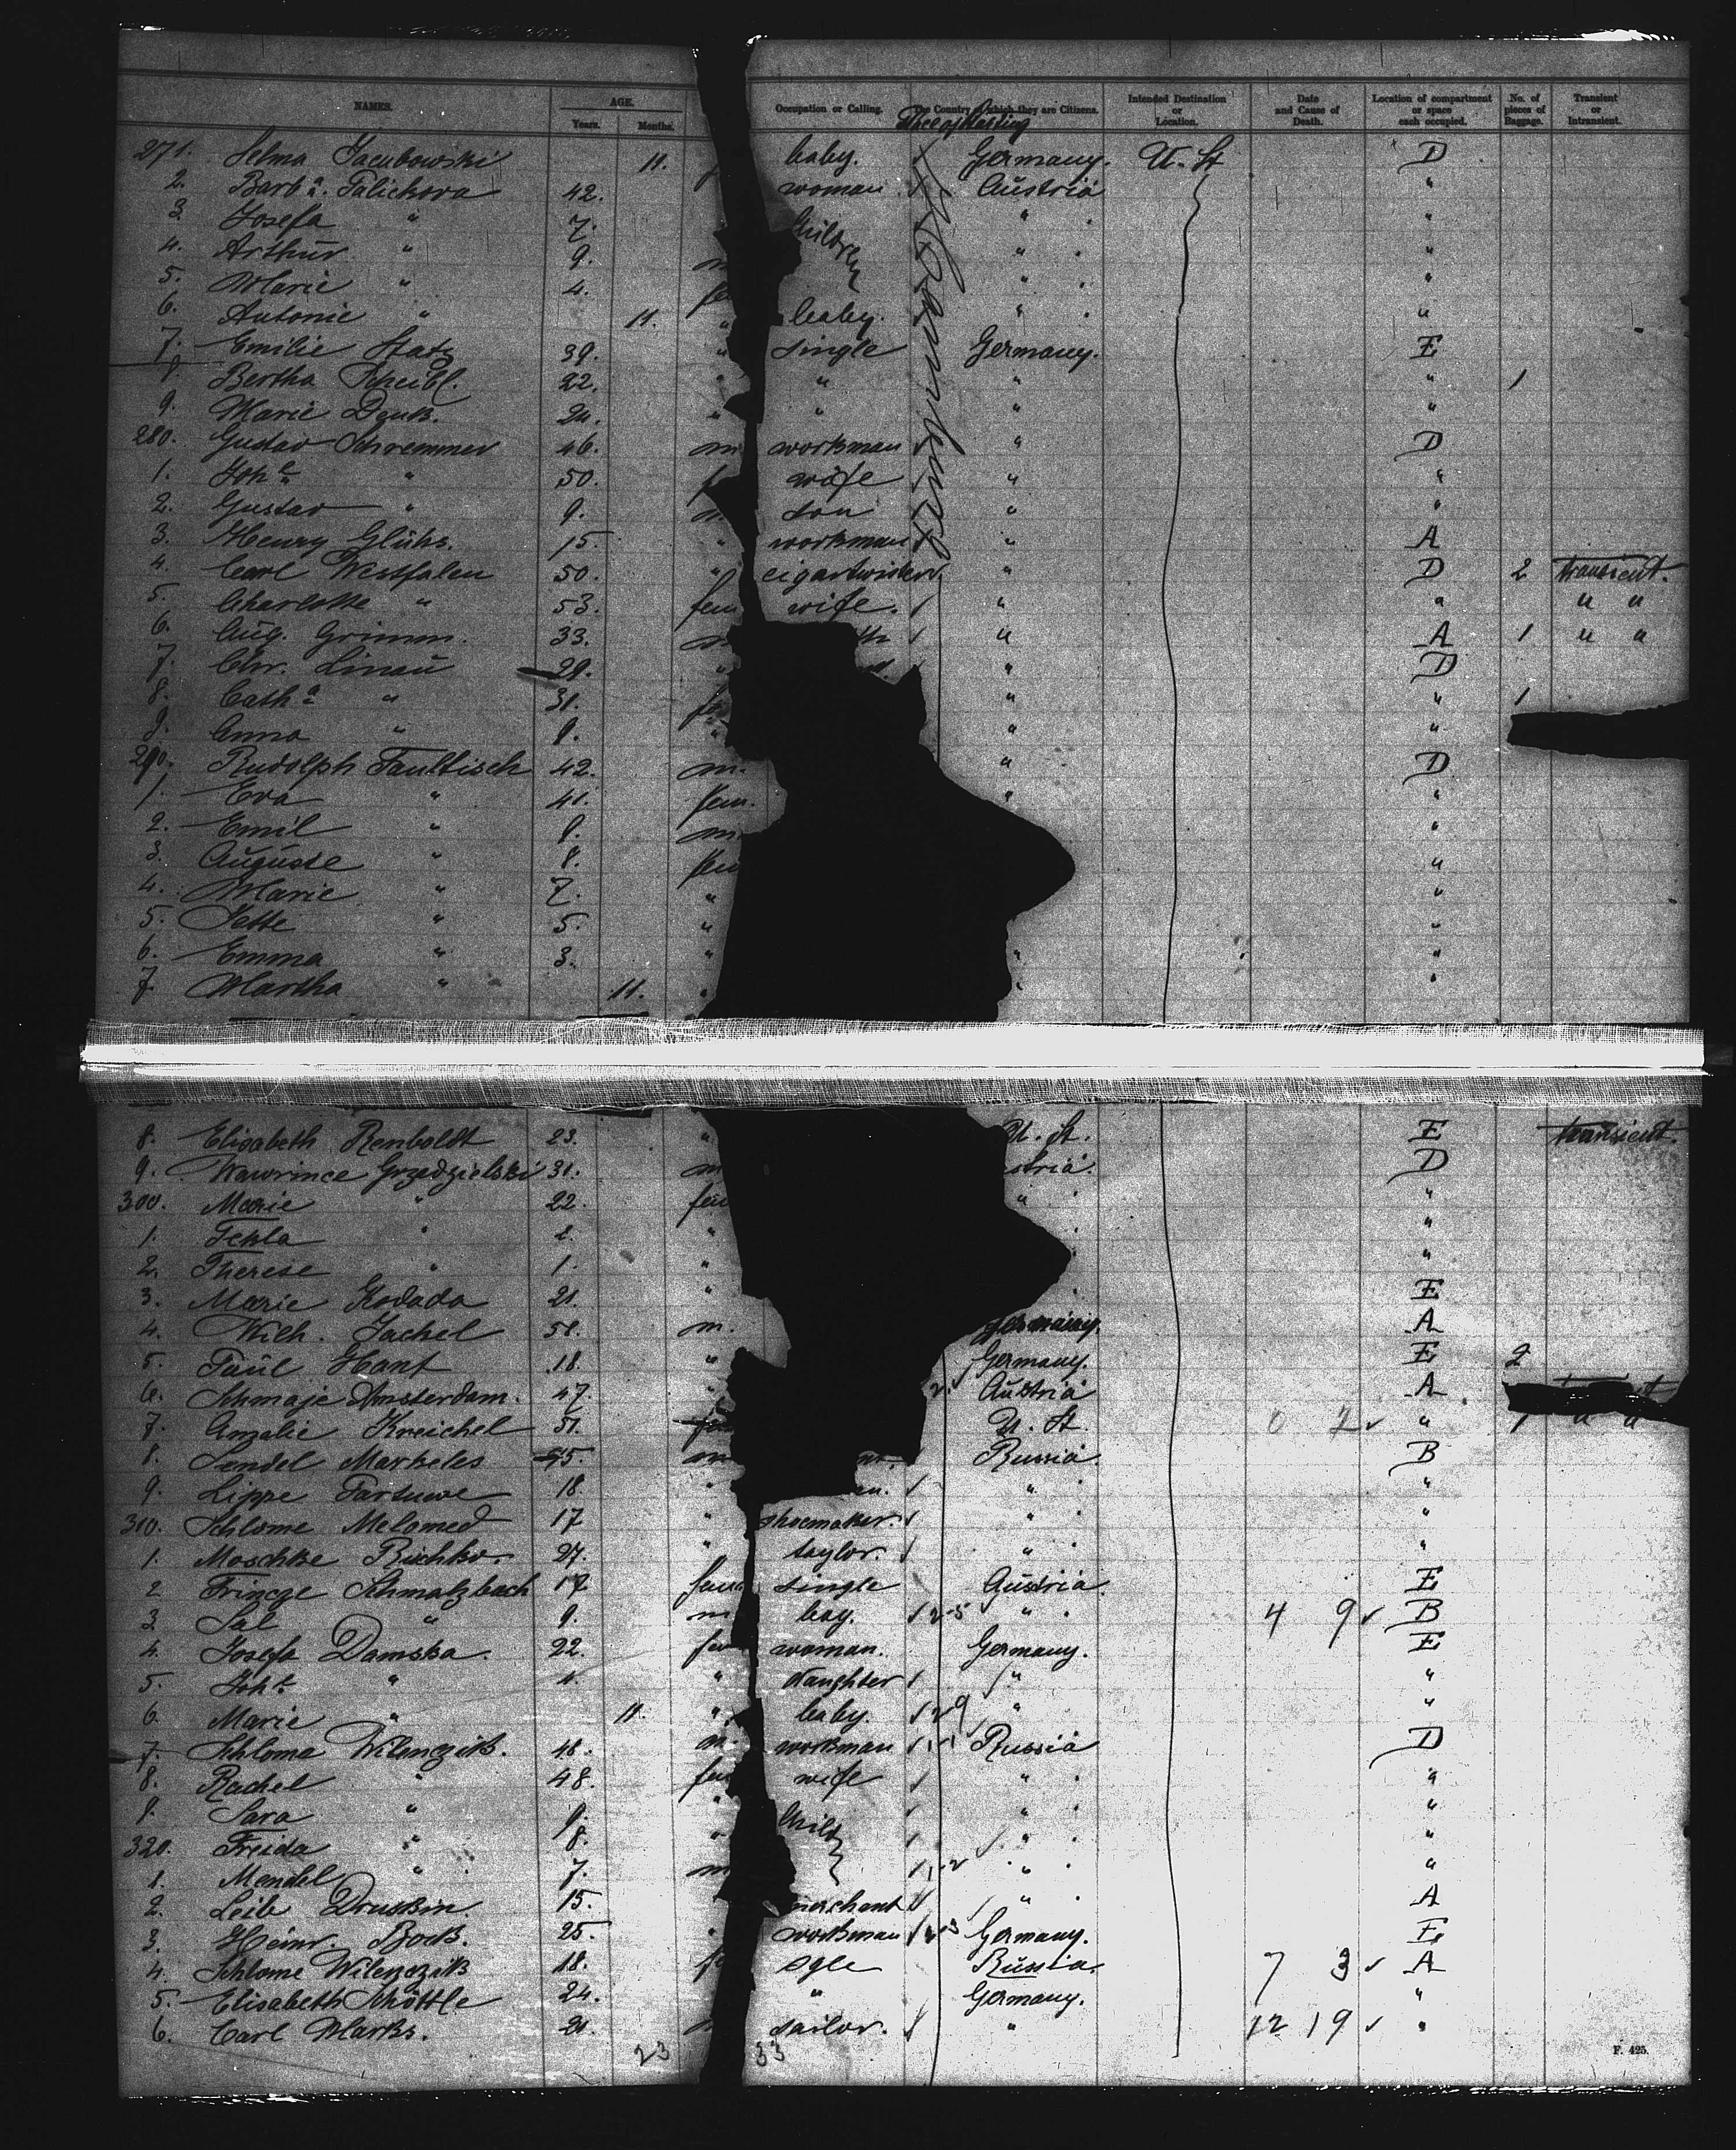 NAMES. AGE. Occupation or Calling. The Country of which they are Citizens. Intended Destination or Location. Date and Cause of Death. Location of compartment or space each occupied. No. of pieces of Baggage. Transient or Intransient.
Years. Months.
271. Selma Jacubowski 11. baby. Germany. U. St D
2. Barb a. Talickova 42. woman Austria "
3. Josefa " 7. Children " "
4. Arthur " 9. m " "
5. Marie " 4. fe " "
6. Antonie " 11. " baby. " "
7. Emilie Statz 39. " single Germany. E
8. Bertha Scheibl. 22. " " " " 1
9. Marie Denk. 24. " " " "
280. Gustav Schremmer 46. m workman " D
1. Joh e " 50. f wife " "
2. Gustav " 9. son " "
3. Henry Glühs. 15. " workman " A
4. Carl Westfalen 50. " cigartwister " D 2 transient.
5. Charlotte " 53. fem wife. " " " "
6. Aug. Grimm. 33. m " A 1 " "
7. Chr. Linau 29. " " D
8. Cath a " 31. fe " " 1
9. Anna " 9. " " "
290. Rudolph Faultisch 42. m. " D
1. Eva " 41. fem. " "
2. Emil " 9. m "
3. Auguste " 8. fem "
4. Marie " 7. " "
5. Jette " 5. " "
6. Emma " 3. " " "
7. Martha " 11. " " "
8. Elisabeth Renboldt 23. " U. St. E transient.
9. Wawrince Grzedzielski 31. m stria. D
300. Marie " 22. fem " "
1. Tekla " 2. " "
2. Therese " 1. " "
3. Marie Kodada 21. " E
4. Wilh. Jackel 51. m Germany. A
5. Paul Hanf 18. " Germany. E 2
6. Schmaje Amsterdam. 47. " Austria A
7. Amalie Kreichel 51. fem U. St. 0 2 " 1 " "
8. Sendel Markeles 45. m Russia. B
9. Lippe 18. " " "
310. Schlome Melamed 17 " shoemaker. " "
1. Moschke 27. " taylor. " "
2 Schmalzbach 17 fem single Austria. E
3 Sal " 9. m boy. 2-5 " 4 9 B
4. Josefa Damska. 22. fem woman. Germany. E
5. Joh e " 4. " daughter " "
6. Marie " 11. " baby. 29 " "
7. Schloma Wilenczik. 48. m. workman Russia D
8. Rachel " 48. fem wife " "
9. Sara " 9. " Child " "
320. Freida " 8. " " "
1. Mendel " 7. m " "
2. Leib Druskin 15. merchant " A
3. Heinr. Bock. 25. " workman Germany. E
4. Schlome Wilenczik 18. f sgle Russia. 7 3 A
5. Elisabeth Schöttle 24. " Germany. "
6. Carl Marks. 21. sailor. " 12 19 "
23 33
F. 425.